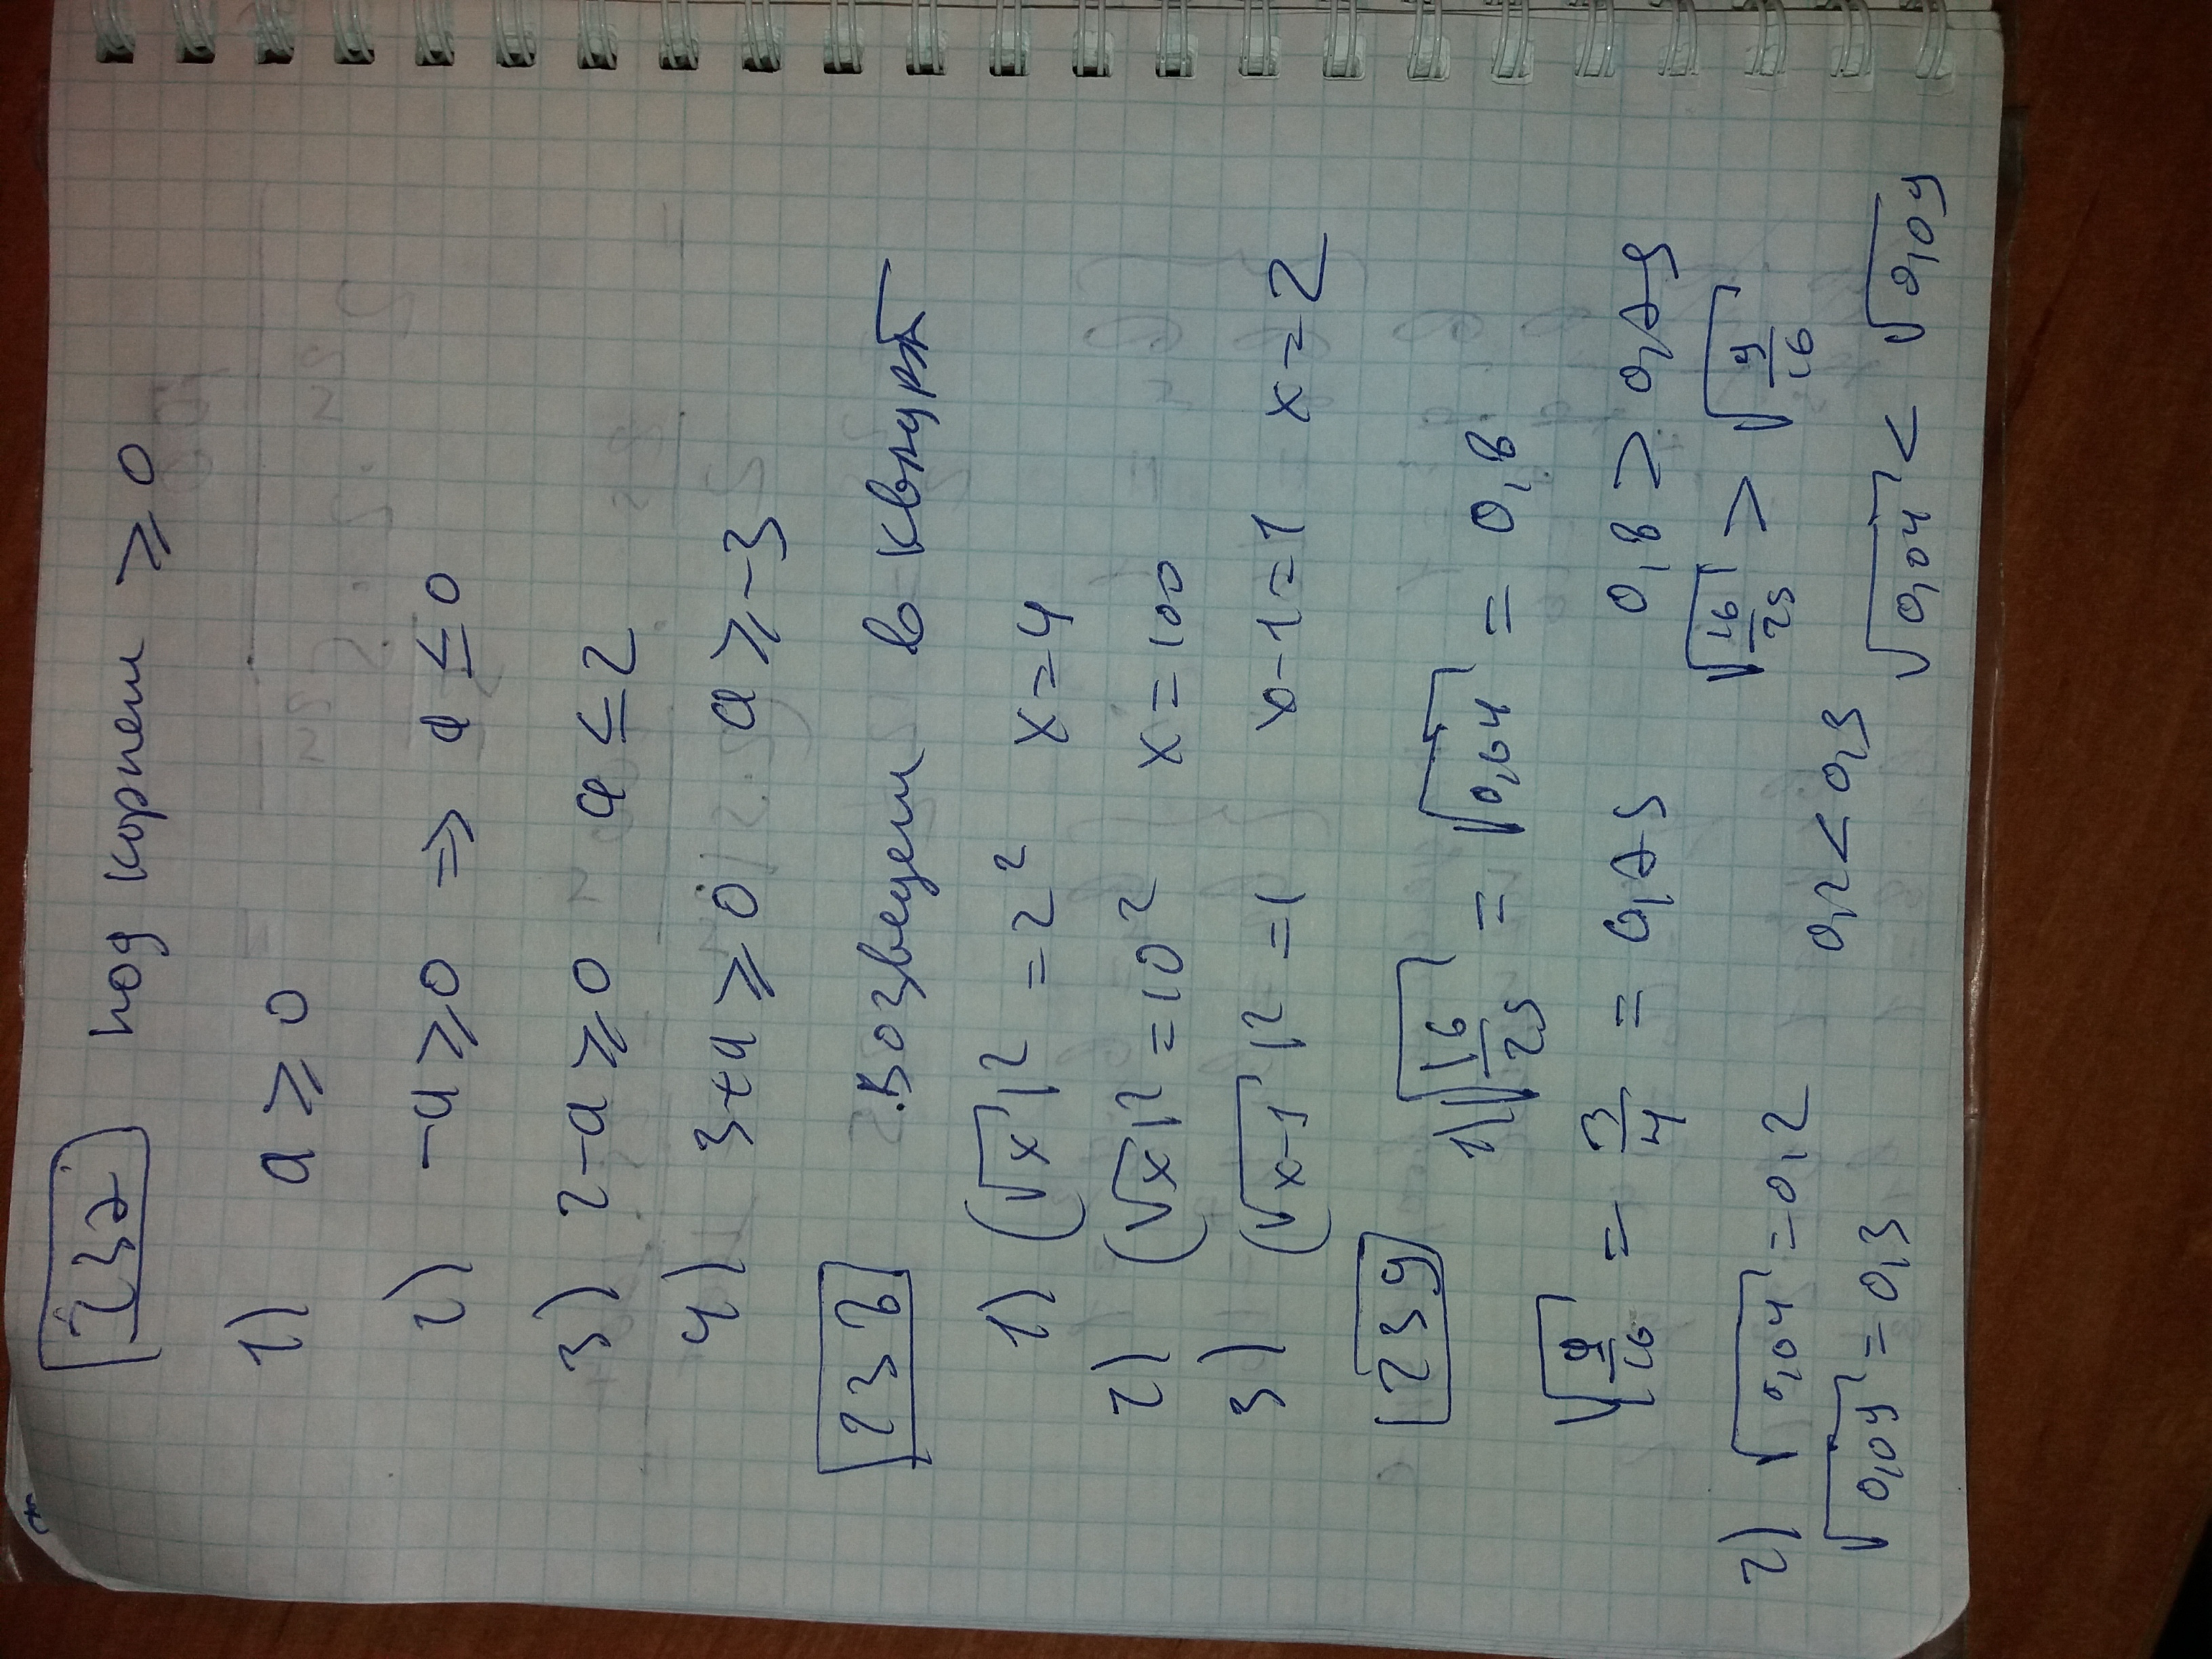 232 под корнем ⩾ 0
1) a ⩾ 0
2) -a ⩾ 0 ⇒ a ≤ 0
3) 2-a ⩾ 0 a ≤ 2
4) 3+a ⩾ 0 a ⩾ -3
238 Возведем в квадрат
1) (√x)² = 2² x = 4
2) (√x)² = 10² x = 100
3) (√x-1)² = 1 x-1 = 1 x = 2
239 1) √16/25 = √0,64 = 0,8
√9/16 = 3/4 = 0,75 0,8 > 0,75
√16/25 > √9/16
2) √0,04 = 0,2
√0,09 = 0,3 0,2 < 0,3 √0,04 < √0,09